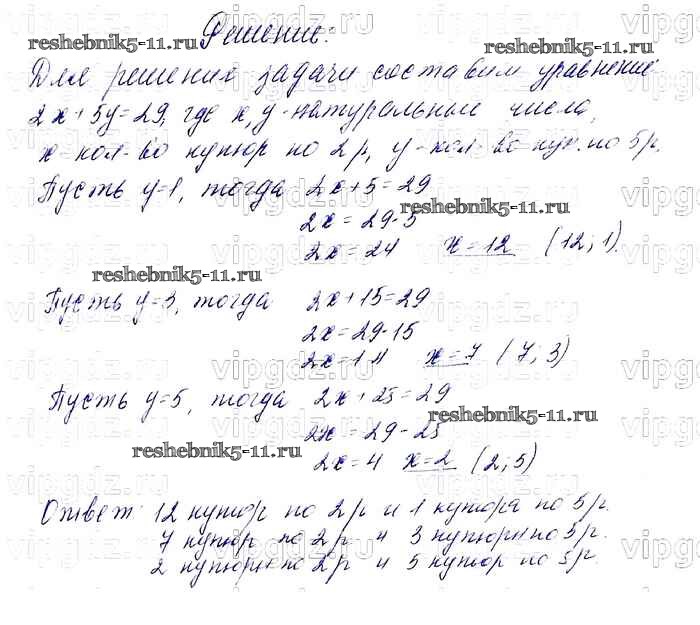 Решение:
Для решения задачи составим уравнение
2x+5y=29, где x, y - натуральные числа,
x - кол-во купюр по 2р, y - кол-во куп. по 5р.
Пусть y=1, тогда 2x+5=29
2x=29-5
2x=24 x=12 (12; 1).
Пусть y=3, тогда 2x+15=29
2x=29-15
2x=14 x=7 (7; 3)
Пусть y=5, тогда 2x+25=29
2x=29-25
2x=4 x=2 (2; 5)
Ответ: 12 купюр по 2р и 1 купюра по 5р.
7 купюр по 2р и 3 купюры по 5р.
2 купюры по 2р и 5 купюр по 5р.
reshebnik5-11.ru
reshebnik5-11.ru
reshebnik5-11.ru
reshebnik5-11.ru
reshebnik5-11.ru
reshebnik5-11.ru
vipgdz.ru